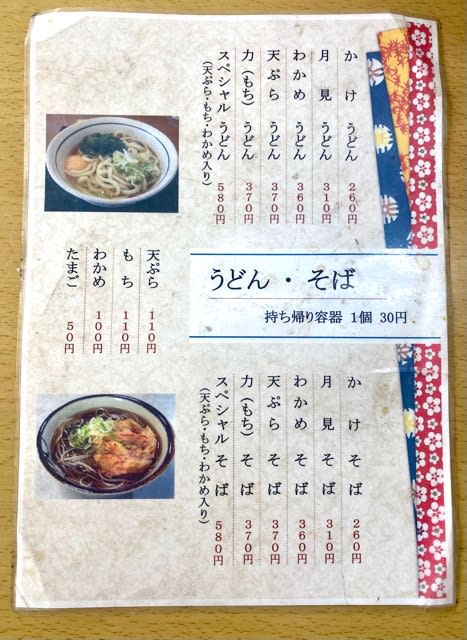 かけ うどん 260円
月見 うどん 310円
わかめ うどん 360円
天ぷら うどん 370円
力(もち) うどん 370円
スペシャル うどん 580円
(天ぷら・もち・わかめ入り)
うどん・そば
持ち帰り容器 1個 30円
天ぷら 110円
もち 110円
わかめ 100円
たまご 50円
かけ そば 260円
月見 そば 310円
わかめ そば 360円
天ぷら そば 370円
力(もち) そば 370円
スペシャル そば 580円
(天ぷら・もち・わかめ入り)